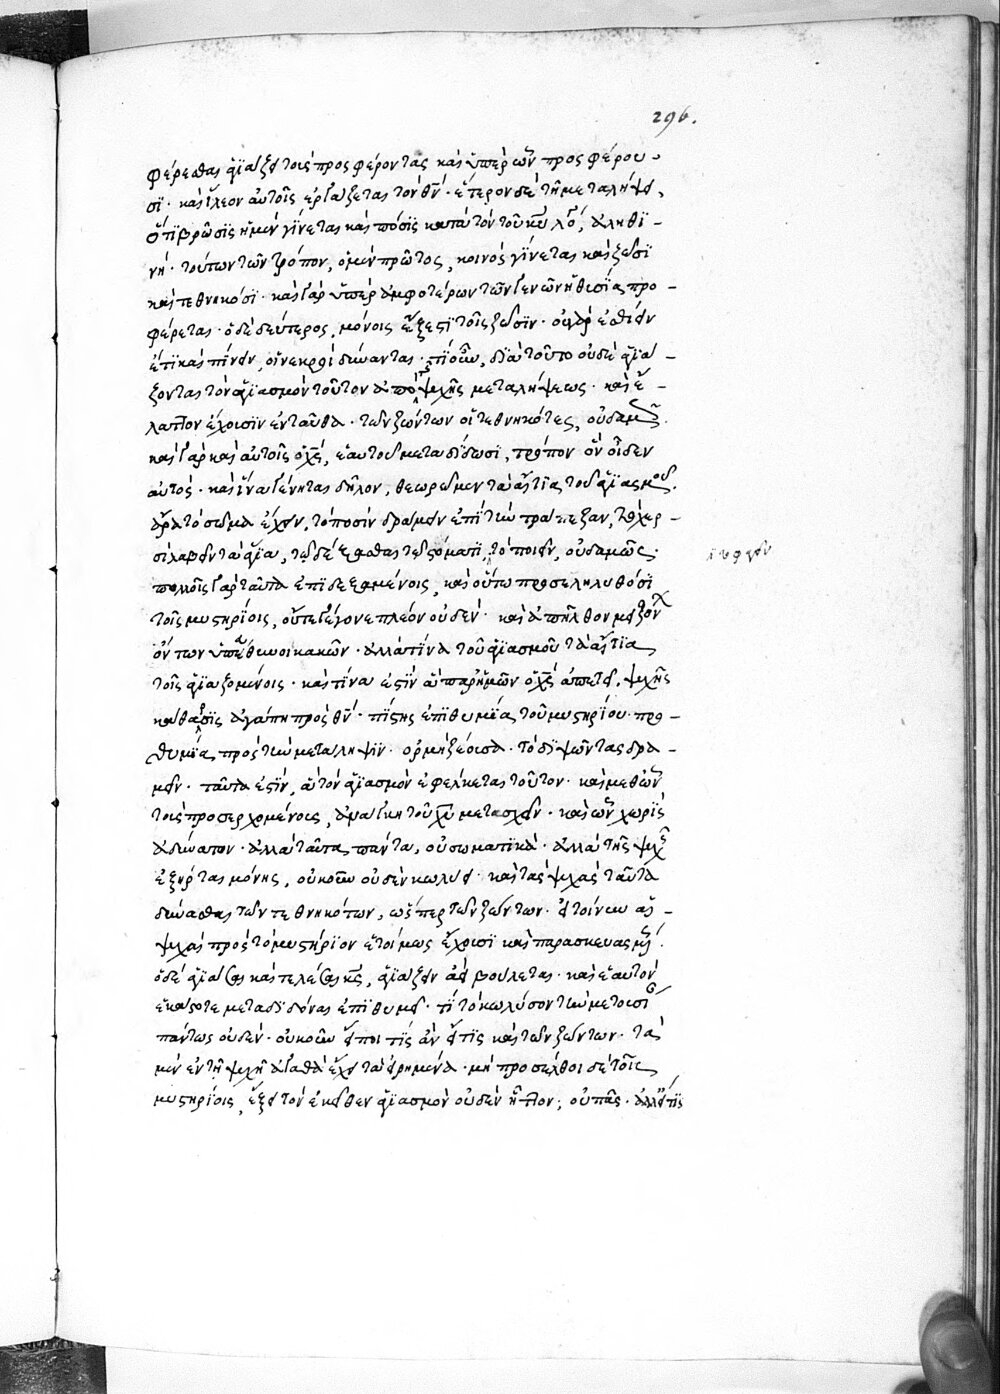 296.
φέρεσθαι ἁγϊάζει τοὺς προσφέροντας καὶ ὑπὲρ ὧν προσφέρου-
σϊ· καὶ ἵλεον αὐτοῖς ἐργάζεται τὸν θν̄· ἕτερον δὲ τῆ μεταλήψει,
ὅτϊ βρῶσϊς ἡμῖν γίνεται καὶ πόσϊς κατὰ τὸν τοῦ κῡ λό, ἀληθϊ-
νή· τούτων τῶν τρόπων, ὁ μὲν πρῶτος, κοινὸς γίνεται καὶ ζῶσϊ
καὶ τεθνηκόσϊ· καὶ γὰρ ὑπὲρ ἀμφοτέρων τῶν γενῶν ἡ θυσία προ
φέρεται· ὁ δὲ δεύτερος, μόνοις ἔξεστϊ τοῖς ζῶσϊν· οὐ γὰρ ἐσθίειν
ἔτϊ καὶ πίνειν, οἱ νεκροὶ δύνανται· τί οὖν, διὰ τοῦτο οὐδὲ ἁγϊά-
ζονται τὸν ἁγϊασμὸν τοῦτον ἀπὸ τῆς ψυχῆς μεταλήψεως· καὶ ἔ-
λαττον ἔχουσϊν ἐνταῦθα· τῶν ζώντων οἱ τεθνηκότες, οὐδαμῶς·
καὶ γὰρ καὶ αὐτοῖς ὁ χς̄, ἑαυτοῦ μεταδίδωσϊ, τρόπον ὃν οἶδεν
αὐτός· καὶ ἵνα γένηται δῆλον, θεωρῶμεν τὰ αἴτϊα τοῦ ἁγϊασμοῦ.
ἆρα τὸ σῶμα ἔχειν, τὸ ποσὶν δραμεῖν ἐπὶ τὴν τράπεζαν, τὸ χερ-
σὶ λαβεῖν τὰ ἅγϊα, τὸ δέξασθαι τῶ στόματϊ, τὸ πιεῖν, οὐδαμῶς·
πολλοῖς γὰρ ταῦτα ἐπιδεξαμένοις, καὶ οὕτω προσεληλυθόσϊ
τοῖς μυστηρίοις, οὔτε γέγονε πλέον οὐδέν· καὶ ἀπῆλθον μειζόνων
ὄντων ὑπεύθυνοι κακῶν· ἀλλὰ τίνα τοῦ ἁγϊασμοῦ τὰ αἴτϊα
τοῖς ἁγϊαζομένοις· καὶ τίνα ἐστϊν ἃ παρ' ἡμῶν ὁ χς̄ ἀπαιτεῖ. ψυχῆς
κάθαρσϊς ἀγάπη πρὸς θν̄· πίστις ἐπϊθυμία τοῦ μυστηρίου· προ-
θυμία πρὸς τὴν μετάληψϊν· ὁρμὴ ζέουσα· τὸ διψῶντας δρα-
μεῖν· ταῦτα ἐστϊν, ἃ τὸν ἁγϊασμὸν ἐφέλκεται τοῦτον· καὶ μεθ' ὧν
τοὺς προσερχομένους, ἀνάγκη τοῦ χῡ μετασχεῖν· καὶ ὧν χωρϊς
ἀδύνατον· ἀλλὰ ταῦτα πάντα, οὐ σωματϊκὰ· ἀλλὰ τῆς ψυχῆς
ἐξήρτηται μόνης, οὐκοῦν οὐδὲν κωλύει· καὶ τὰς ψυχὰς ταῦτα
δύνασθαι τῶν τεθνηκότων, ὥσπερ τῶν ζώντων· εἰ τοίνυν αἱ
ψυχαὶ πρὸς τὸ μυστήριον ἑτοίμως ἔχουσϊ καὶ παρασκευασμέ·
ὁ δὲ ἁγϊάσας καὶ τελέσας κς̄, ἁγϊάζειν ἀεὶ βούλεται· καὶ ἑαυτὸν
ἑκάστοτε μεταδϊδόναι ἐπϊθυμεῖ· τί τὸ κωλύσον τὴν μετουσίαν
πάντως οὐδέν· οὐκοῦν εἴποι τίς ἂν εἴτϊς καὶ τῶν ζώντων· τὰ
μὲν ἐν τῆ ψυχῆ ἀγαθὰ ἔχει τὰ εἰρημένα· μὴ προσέλθοι δὲ τοῖς
μυστηρίοις, ἕξει τὸν ἐκεῖθεν ἁγϊασμὸν οὐδὲν ἧττον; οὐ πᾶς· ἀλλ' εἴτϊς